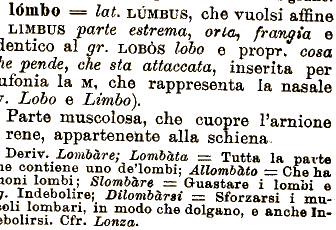 lómbo = lat. LÚMBUS, che vuolsi affine
LIMBUS parte estrema, orlo, frangia e
dentico al gr. LOBÒS lobo e propr. cosa
he pende, che sta attaccata, inserita per
ufonia la M, che rappresenta la nasale
v. Lobo e Limbo).
Parte muscolosa, che cuopre l'arnione
rene, appartenente alla schiena
Deriv. Lombàre; Lombàta = Tutta la parte
he contiene uno de'lombi; Allombàto = Che ha
uoni lombi; Slombàre = Guastare i lombi e
g. Indebolire; Dilombàrsi = Sforzarsi i mu-
coli lombari, in modo che dolgano, e anche In-
ebolirsi. Cfr. Lonza.